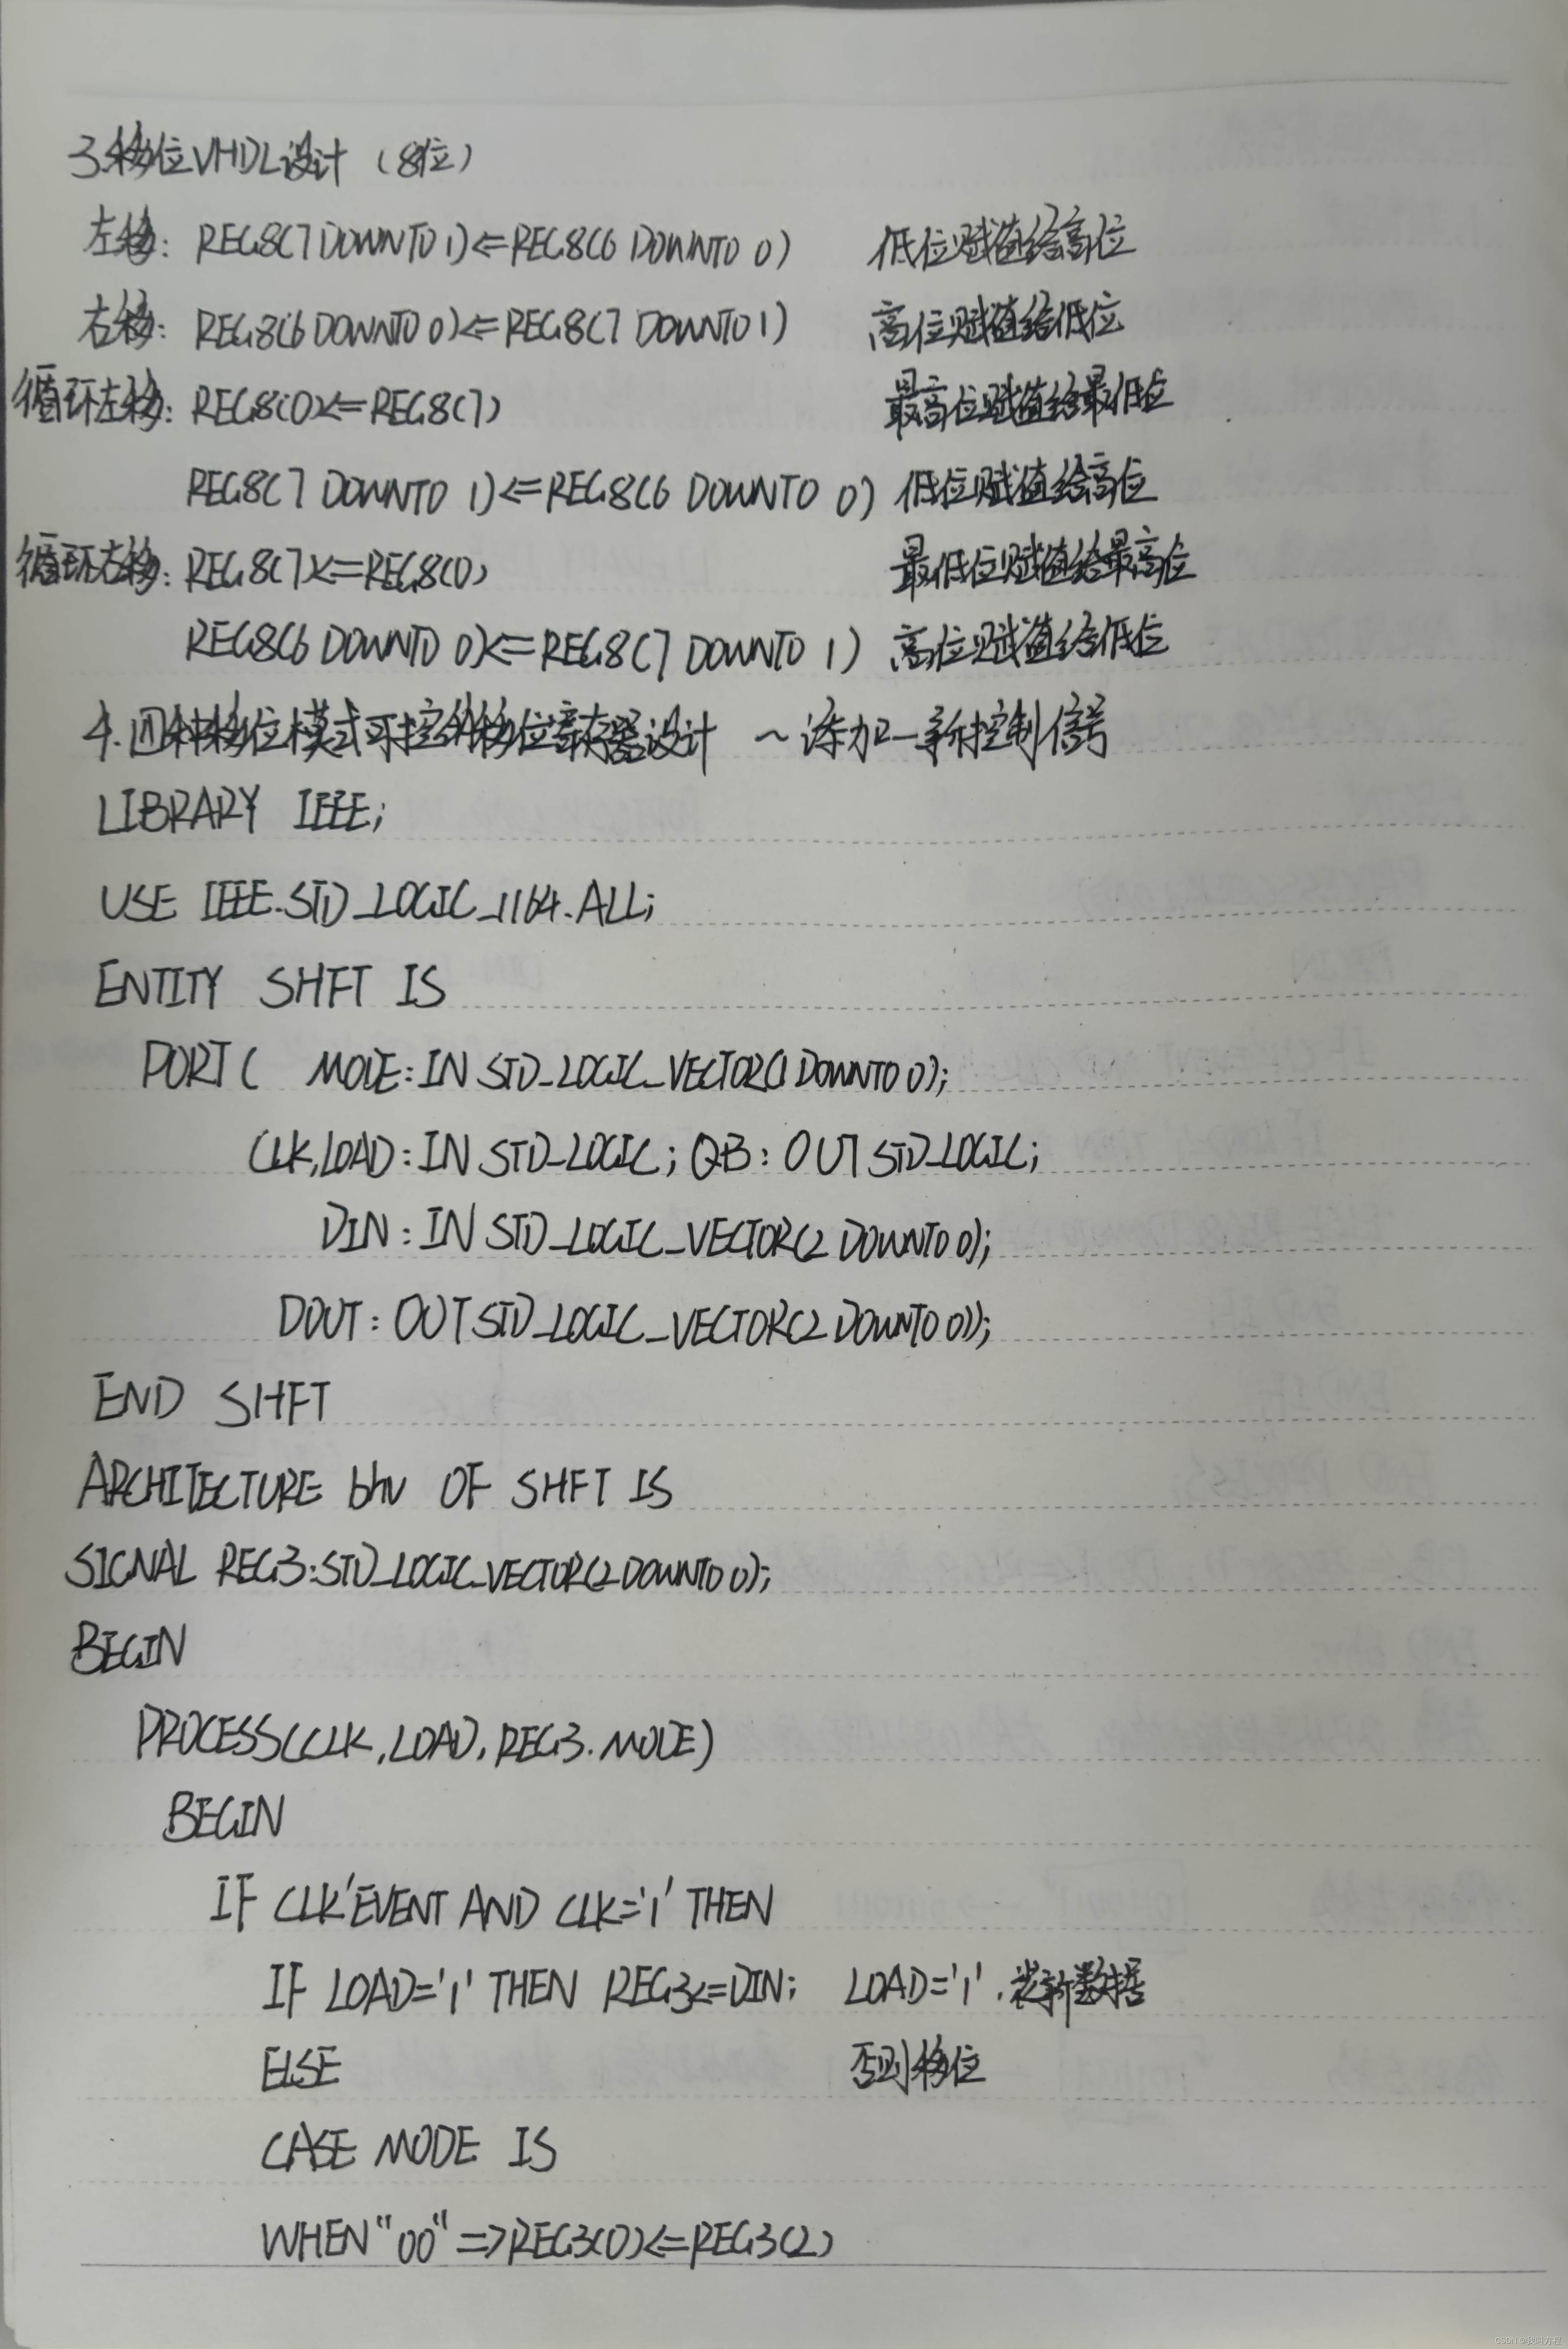 3.移位VHDL设计（8位）
左移：REG8(7 DOWNTO 1)<=REG8(6 DOWNTO 0) 低位赋值给高位
右移：REG8(6 DOWNTO 0)<=REG8(7 DOWNTO 1) 高位赋值给低位
循环左移：REG8(0)<=REG8(7) 最高位赋值给最低位
REG8(7 DOWNTO 1)<=REG8(6 DOWNTO 0) 低位赋值给高位
循环右移：REG8(7)<=REG8(0) 最低位赋值给最高位
REG8(6 DOWNTO 0)<=REG8(7 DOWNTO 1) 高位赋值给低位
4.四种移位模式可控的移位寄存器设计 ~添加一新控制信号
LIBRARY IEEE;
USE IEEE.STD_LOGIC_1164.ALL;
ENTITY SHFT IS
PORT( MODE:IN STD_LOGIC_VECTOR(1 DOWNTO 0);
CLK,LOAD:IN STD_LOGIC; QB:OUT STD_LOGIC;
DIN:IN STD_LOGIC_VECTOR(2 DOWNTO 0);
DOUT:OUT STD_LOGIC_VECTOR(2 DOWNTO 0));
END SHFT
ARCHITECTURE bhv OF SHFT IS
SIGNAL REG3:STD_LOGIC_VECTOR(2 DOWNTO 0);
BEGIN
PROCESS(CLK,LOAD,REG3.MODE)
BEGIN
IF CLK'EVENT AND CLK='1' THEN
IF LOAD='1' THEN REG3<=DIN; LOAD='1'.装新数据
ELSE 否则移位
CASE MODE IS
WHEN "00"=>REG3(0)<=REG3(2)